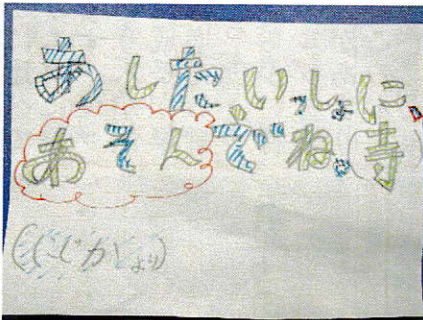 あした、いっしょに
あそんでね。(寺)